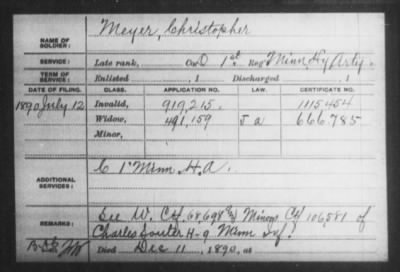 NAME OF SOLDIER: Meyer, Christopher
SERVICE: Late rank, Co. D 1st Reg't Minn. Hy Arty.
TERM OF SERVICE: Enlisted , 1 Discharged , 1
DATE OF FILING. CLASS. APPLICATION NO. LAW. CERTIFICATE NO.
1890 July 12 Invalid, 919,215. 1115454
Widow, 491,159 J a 666785
Minor,
ADDITIONAL SERVICES: C 1" Minn. H.A.
REMARKS: See W. Ctf. 68,698 & Minors Ctf 106,581 of
Charles Souter H-9 Minn Inf.
Died Dec 11, 1890, at